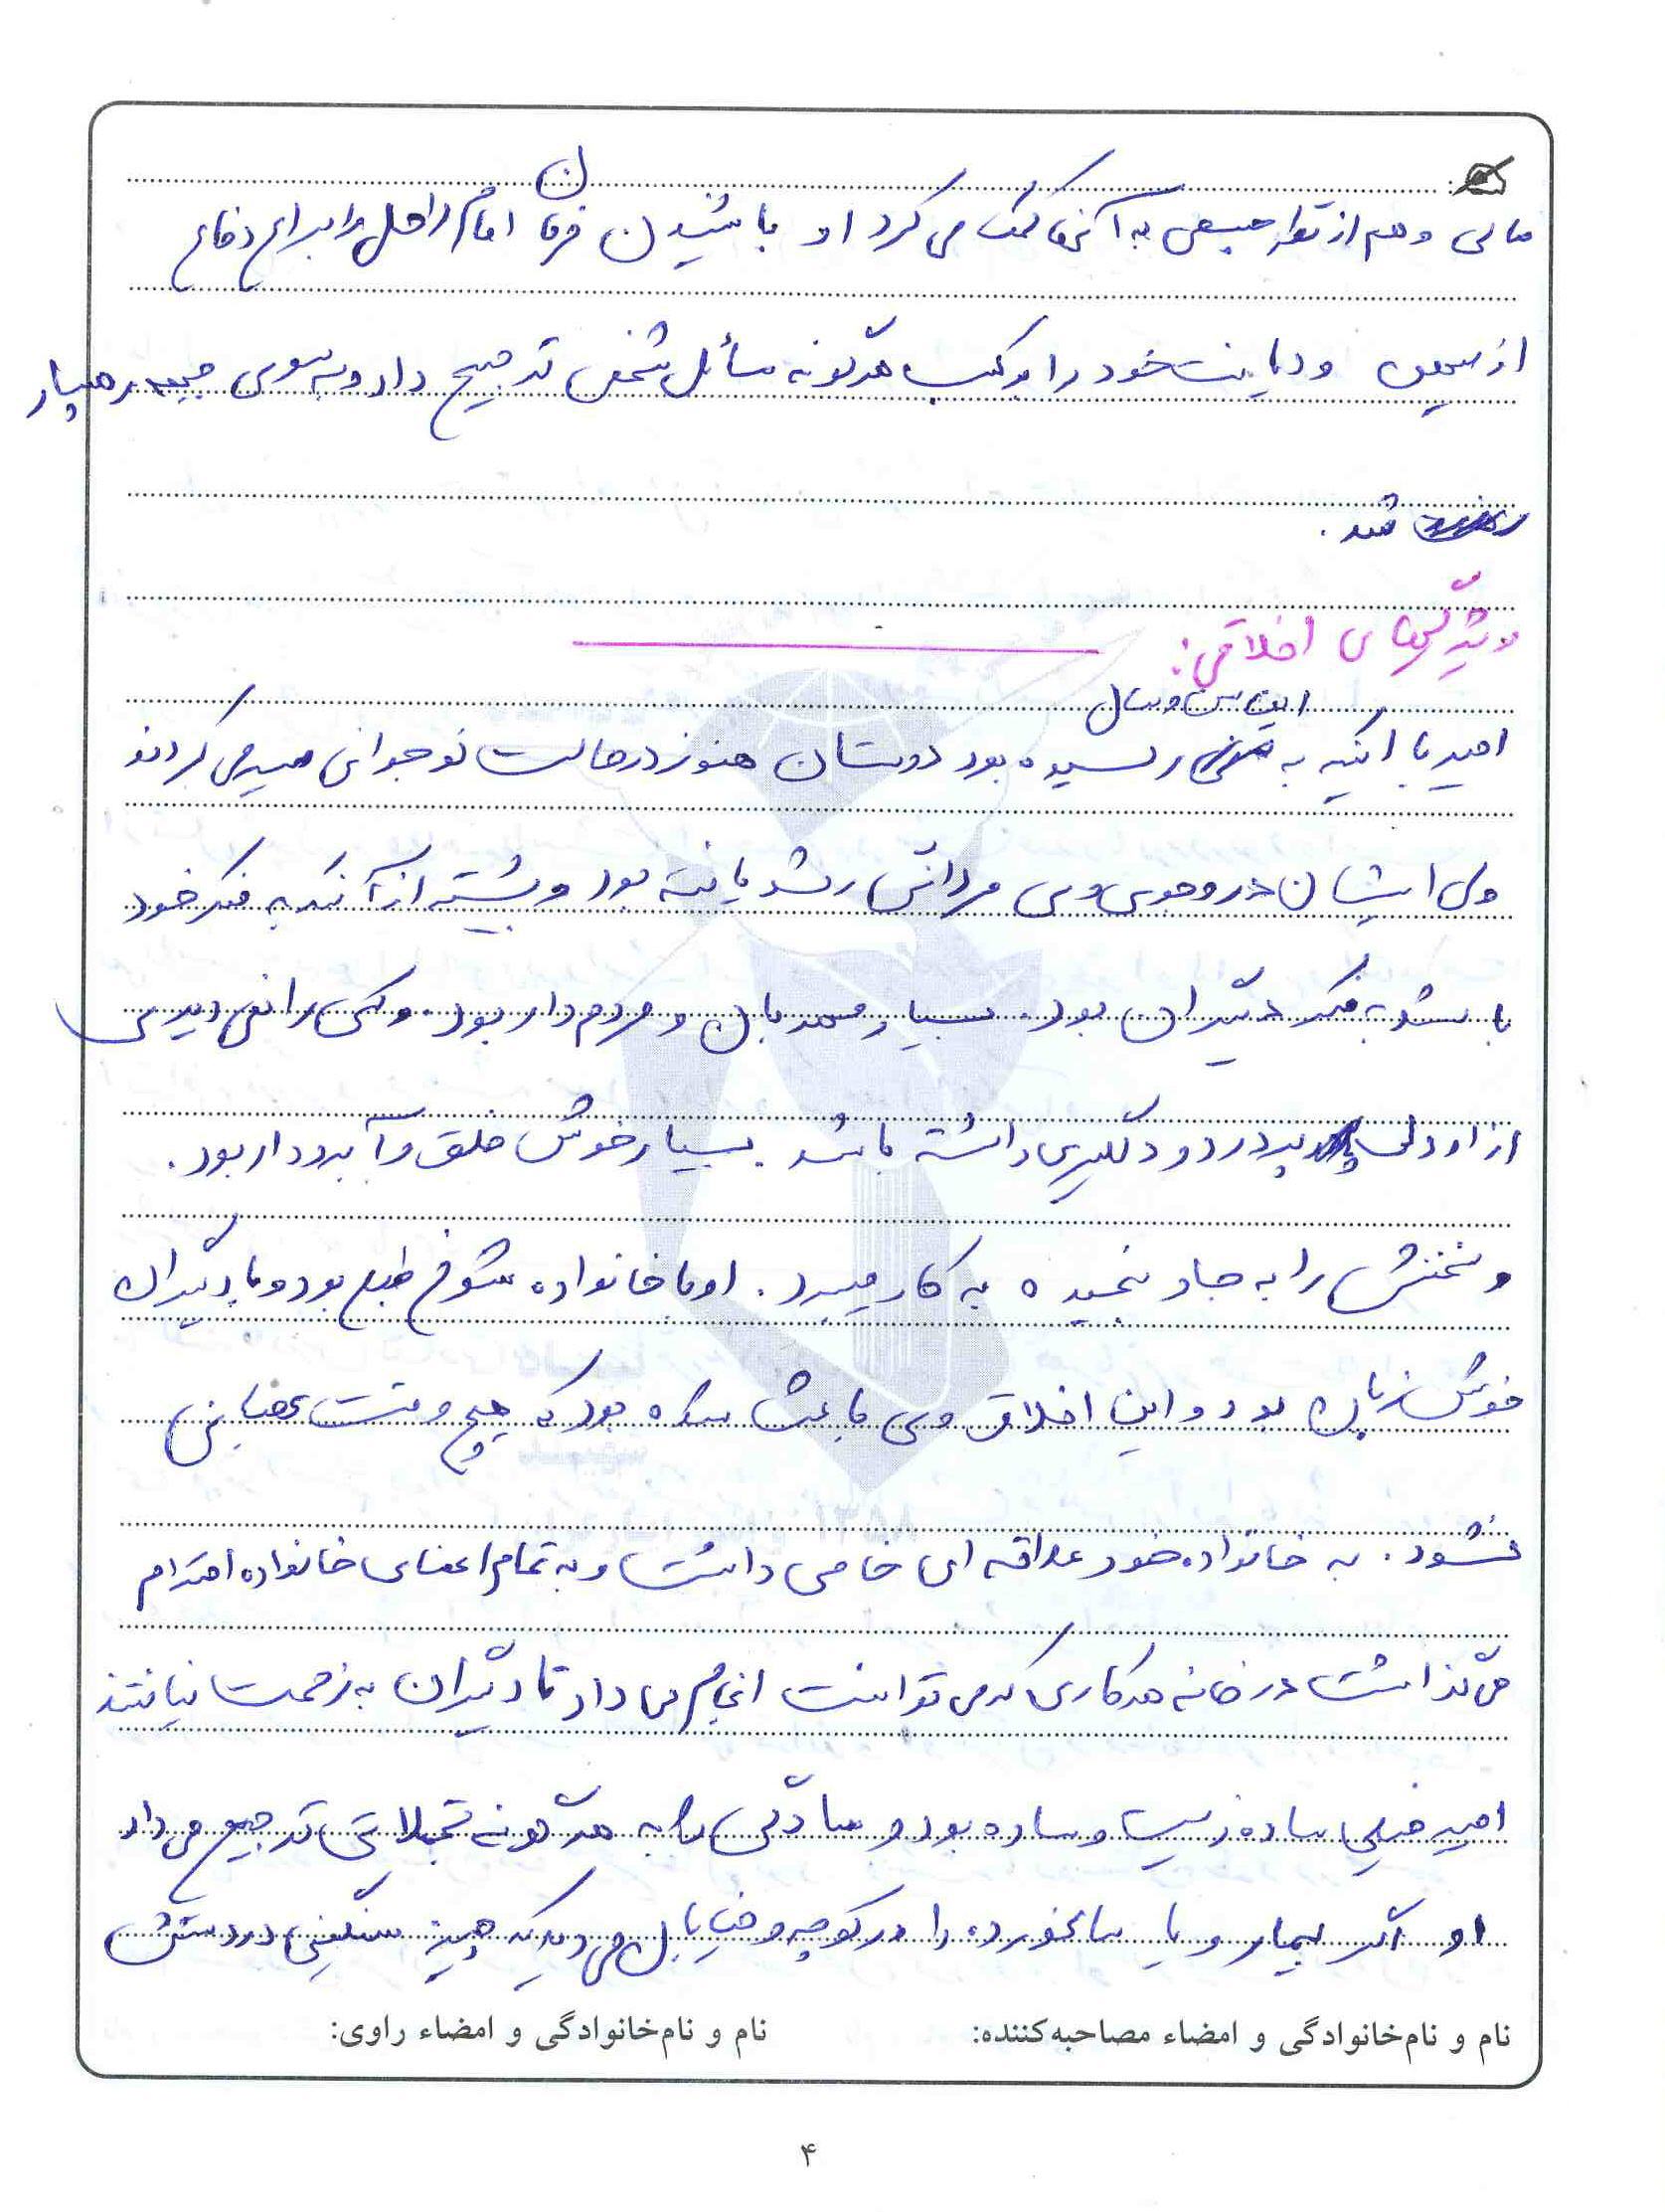 مالی و هم از نظر جسمی به آنها کمک می کرد او با شنیدن فرمان امام راحل را برای دفاع
از میهن و دیانت خود را بر کسب هرگونه مسائل شخصی ترجیح داد و به سوی جبهه رهسپار
شد.
ویژگیهای اخلاقی:
امیر با اینکه به این سن و سال رسیده بود دوستان هنوز در حالت نوجوانی سیر می کردند
ولی ایشان در وجودی وی مردانگی رشد یافته بود و بیشتر از آنکه به فکر خود
باشد به فکر دیگران بود. بسیار مهربان و مردم دار بود. و کسی را نمی دیدی
از او دلی پر درد و دلگیری داشته باشد. بسیار خوش خلق و آبرودار بود.
و سخنش را به جا و سنجیده به کار میبرد. او با خانواده شوخ طبع بود و با دیگران
خوش زبان بود و این اخلاق وی باعث شده بود که هیچ وقت عصبانی
نشود. به خانواده خود علاقه ای خاصی داشت و به تمام اعضای خانواده احترام
می گذاشت در خانه هر کاری که می توانست انجام می داد تا دیگران به زحمت نیافتند
امیر خیلی ساده زیست و ساده بود و سادگی را به هرگونه تجملاتی ترجیح می داد
او اگر بیمار و یا سالخورده را در کوچه و خیابان می دید که چیز سنگینی در دستش
نام و نام‌خانوادگی و امضاء مصاحبه‌کننده: نام و نام‌خانوادگی و امضاء راوی:
۴